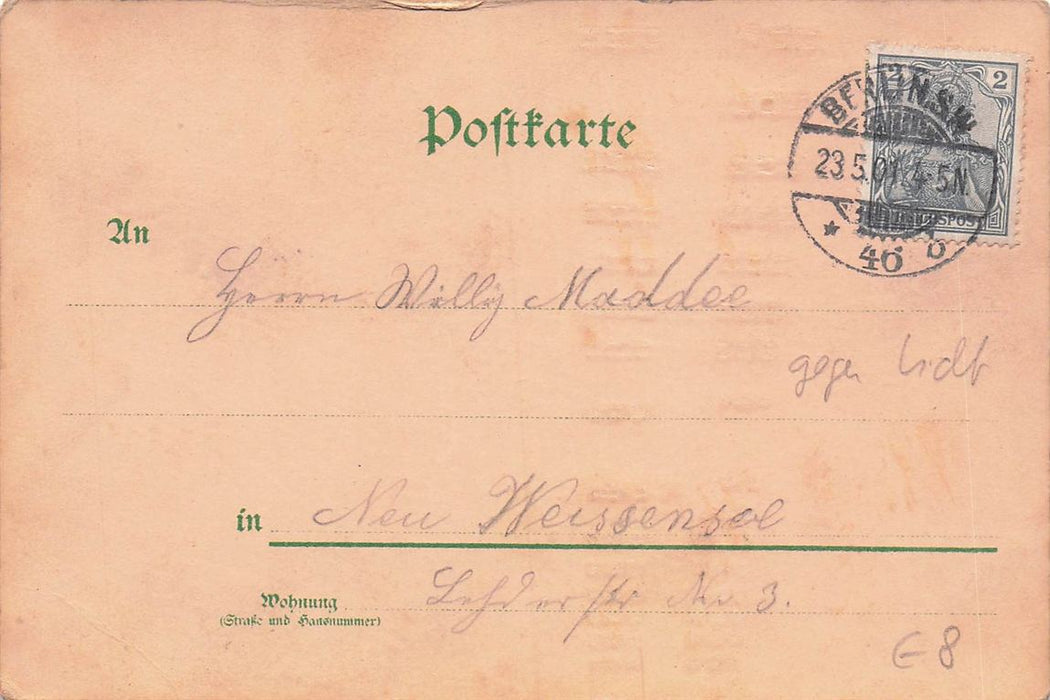 Postkarte
2 2
BERLIN.S.W.
23.5.01. 4-5N.
REICHSPOST
* 46 b
An
Herrn Willy Maddee
gegen Licht
in Neu Weissensee
Wohnung Lehderstr No 3.
(Straße und Hausnummer)
E8